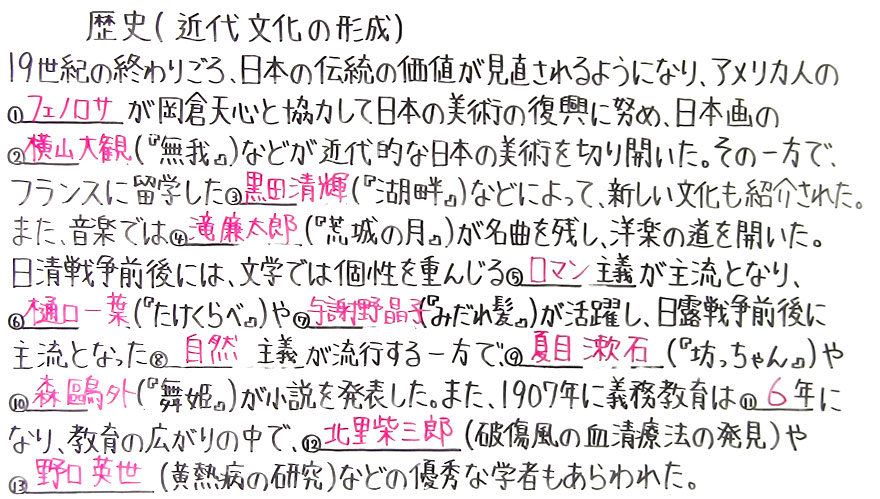 歴史(近代文化の形成)
19世紀の終わりごろ、日本の伝統の価値が見直されるようになり、アメリカ人の
①フェノロサが岡倉天心と協力して日本の美術の復興に努め、日本画の
②横山大観(『無我』)などが近代的な日本の美術を切り開いた。その一方で、
フランスに留学した③黒田清輝(『湖畔』)などによって、新しい文化も紹介された。
また、音楽では④滝廉太郎(『荒城の月』)が名曲を残し、洋楽の道を開いた。
日清戦争前後には、文学では個性を重んじる⑤ロマン主義が主流となり、
⑥樋口一葉(『たけくらべ』)や⑦与謝野晶子(『みだれ髪』)が活躍し、日露戦争前後に
主流となった⑧自然主義が流行する一方で、⑨夏目漱石(『坊っちゃん』)や
⑩森鷗外(『舞姫』)が小説を発表した。また、1907年に義務教育は⑪6年に
なり、教育の広がりの中で、⑫北里柴三郎(破傷風の血清療法の発見)や
⑬野口英世(黄熱病の研究)などの優秀な学者もあらわれた。